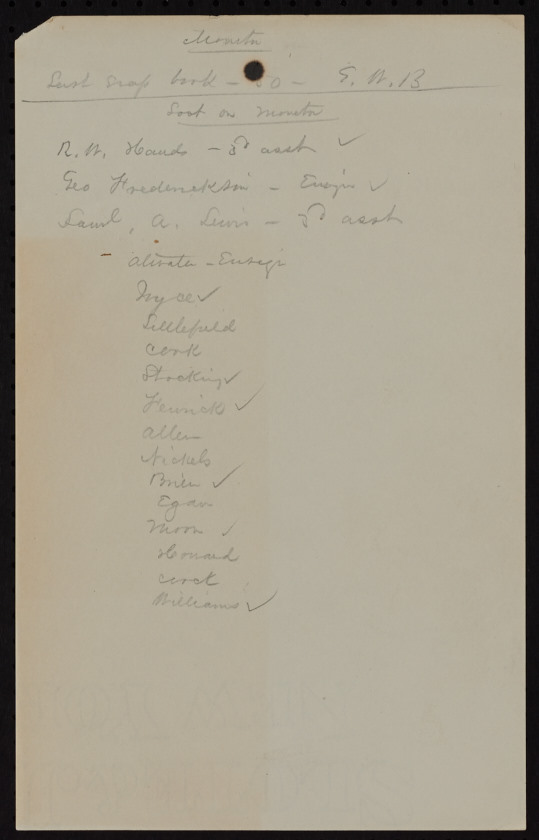 Monitor
Last scrap book - 50 - E. W. B
Lost on Monitor
R. W. Hands - 3d asst ✓
Geo Frederickson - Ensign ✓
Saml, A. Lewis - 3d asst
- Atwater - Ensign
Joyce ✓
Littlefield
Cook
Stocking ✓
Fenwick ✓
Allen
Nickels
Brien ✓
Egan
Moon ✓
Howard
Crock
Williams ✓